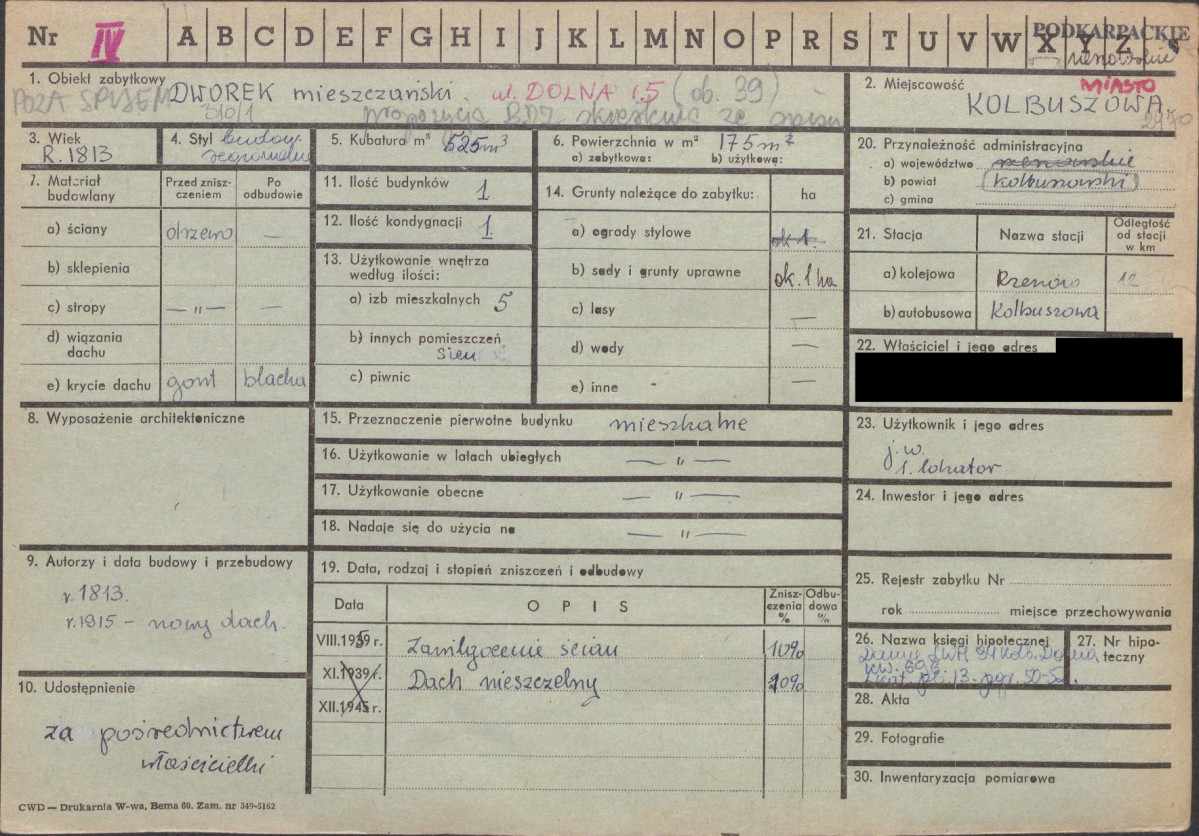 Nr IV A B C D E F G H I J K L M N O P R S T U V W X Y Z
PODKARPACKIE
1. Obiekt zabytkowy DWOREK mieszczański. ul. DOLNA 15 (ob. 39)
POZA SPISEM 310/1 propozycja skreślenia ze spisu
2. Miejscowość MIASTO
KOLBUSZOWA
3. Wiek
R. 1813
4. Styl budow.
regionalne
5. Kubatura m³ 525 m³
6. Powierzchnia w m² 175 m²
a) zabytkowa: b) użytkową:
20. Przynależność administracyjna
a) województwo rzeszowskie
b) powiat (kolbuszowski)
c) gmina
7. Materiał budowlany
Przed zniszczeniem
Po odbudowie
a) ściany drzewo —
b) sklepienia
c) stropy —„— —
d) wiązania dachu
e) krycie dachu gont blacha
11. Ilość budynków 1
12. Ilość kondygnacji 1.
13. Użytkowanie wnętrza według ilości:
a) izb mieszkalnych 5
b) innych pomieszczeń
sień
c) piwnic
14. Grunty należące do zabytku: ha
a) ogrody stylowe ok 1.
b) sady i grunty uprawne ok. 1 ha
c) lasy —
d) wody —
e) inne —
21. Stacja
Nazwa stacji
Odległość od stacji w km
a) kolejowa
b) autobusowa Kolbuszowa
22. Właściciel i jego adres
8. Wyposażenie architektoniczne
15. Przeznaczenie pierwotne budynku mieszkalne
16. Użytkowanie w latach ubiegłych —„—
17. Użytkowanie obecne —„—
18. Nadaje się do użycia na —„—
23. Użytkownik i jego adres
j.w.
1. lokator
24. Inwestor i jego adres
9. Autorzy i data budowy i przebudowy
r. 1813.
r. 1915 – nowy dach.
19. Data, rodzaj i stopień zniszczeń i odbudowy
Data
OPIS
Zniszczenia %
Odbudowa %
VIII.1939 r. Zawilgocenie ścian 10%
XI.1939 r. Dach nieszczelny 10%
XII.1945 r.
25. Rejestr zabytku Nr
rok miejsce przechowywania
26. Nazwa księgi hipotecznej
27. Nr hipoteczny
10. Udostępnienie
za pośrednictwem
właścicielki
28. Akta
29. Fotografie
30. Inwentaryzacja pomiarowa
CWD — Drukarnia W-wa, Bema 60. Zam. nr 349-5162